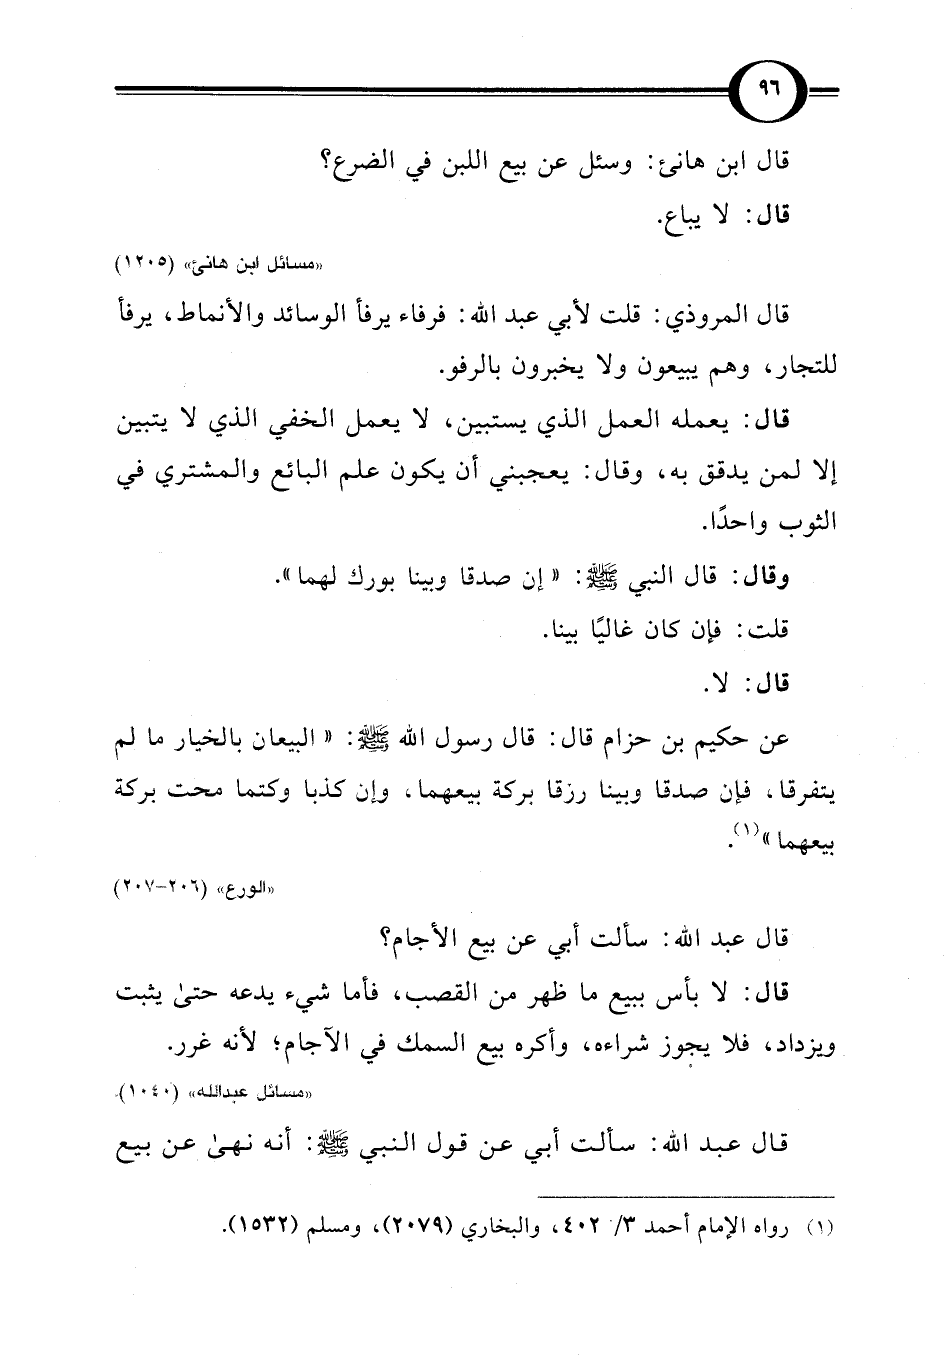 ٩٦
قال ابن هانئ: وسئل عن بيع اللبن في الضرع؟
قال: لا يباع.
«مسائل ابن هانئ» (١٢٠٥)
قال المروذي: قلت لأبي عبد الله: فرفاء يرفأ الوسائد والأنماط، يرفأ
للتجار، وهم يبيعون ولا يخبرون بالرفو.
قال: يعمله العمل الذي يستبين، لا يعمل الخفي الذي لا يتبين
إلا لمن يدقق به، وقال: يعجبني أن يكون علم البائع والمشتري في
الثوب واحدًا.
وقال: قال النبي ﷺ: «إن صدقا وبينا بورك لهما».
قلت: فإن كان غاليًا بينا.
قال: لا.
عن حكيم بن حزام قال: قال رسول الله ﷺ: «البيعان بالخيار ما لم
يتفرقا، فإن صدقا وبينا رزقا بركة بيعهما، وإن كذبا وكتما محت بركة
بيعهما»(١).
«الورع» (٢٠٦-٢٠٧)
قال عبد الله: سألت أبي عن بيع الأجام؟
قال: لا بأس ببيع ما ظهر من القصب، فأما شيء يدعه حتىٰ يثبت
ويزداد، فلا يجوز شراءه، وأكره بيع السمك في الآجام؛ لأنه غرر.
«مسائل عبدالله» (١٠٤٠).
قال عبد الله: سألت أبي عن قول النبي ﷺ: أنه نهىٰ عن بيع
(١) رواه الإمام أحمد ٣/ ٤٠٢، والبخاري (٢٠٧٩)، ومسلم (١٥٣٢).